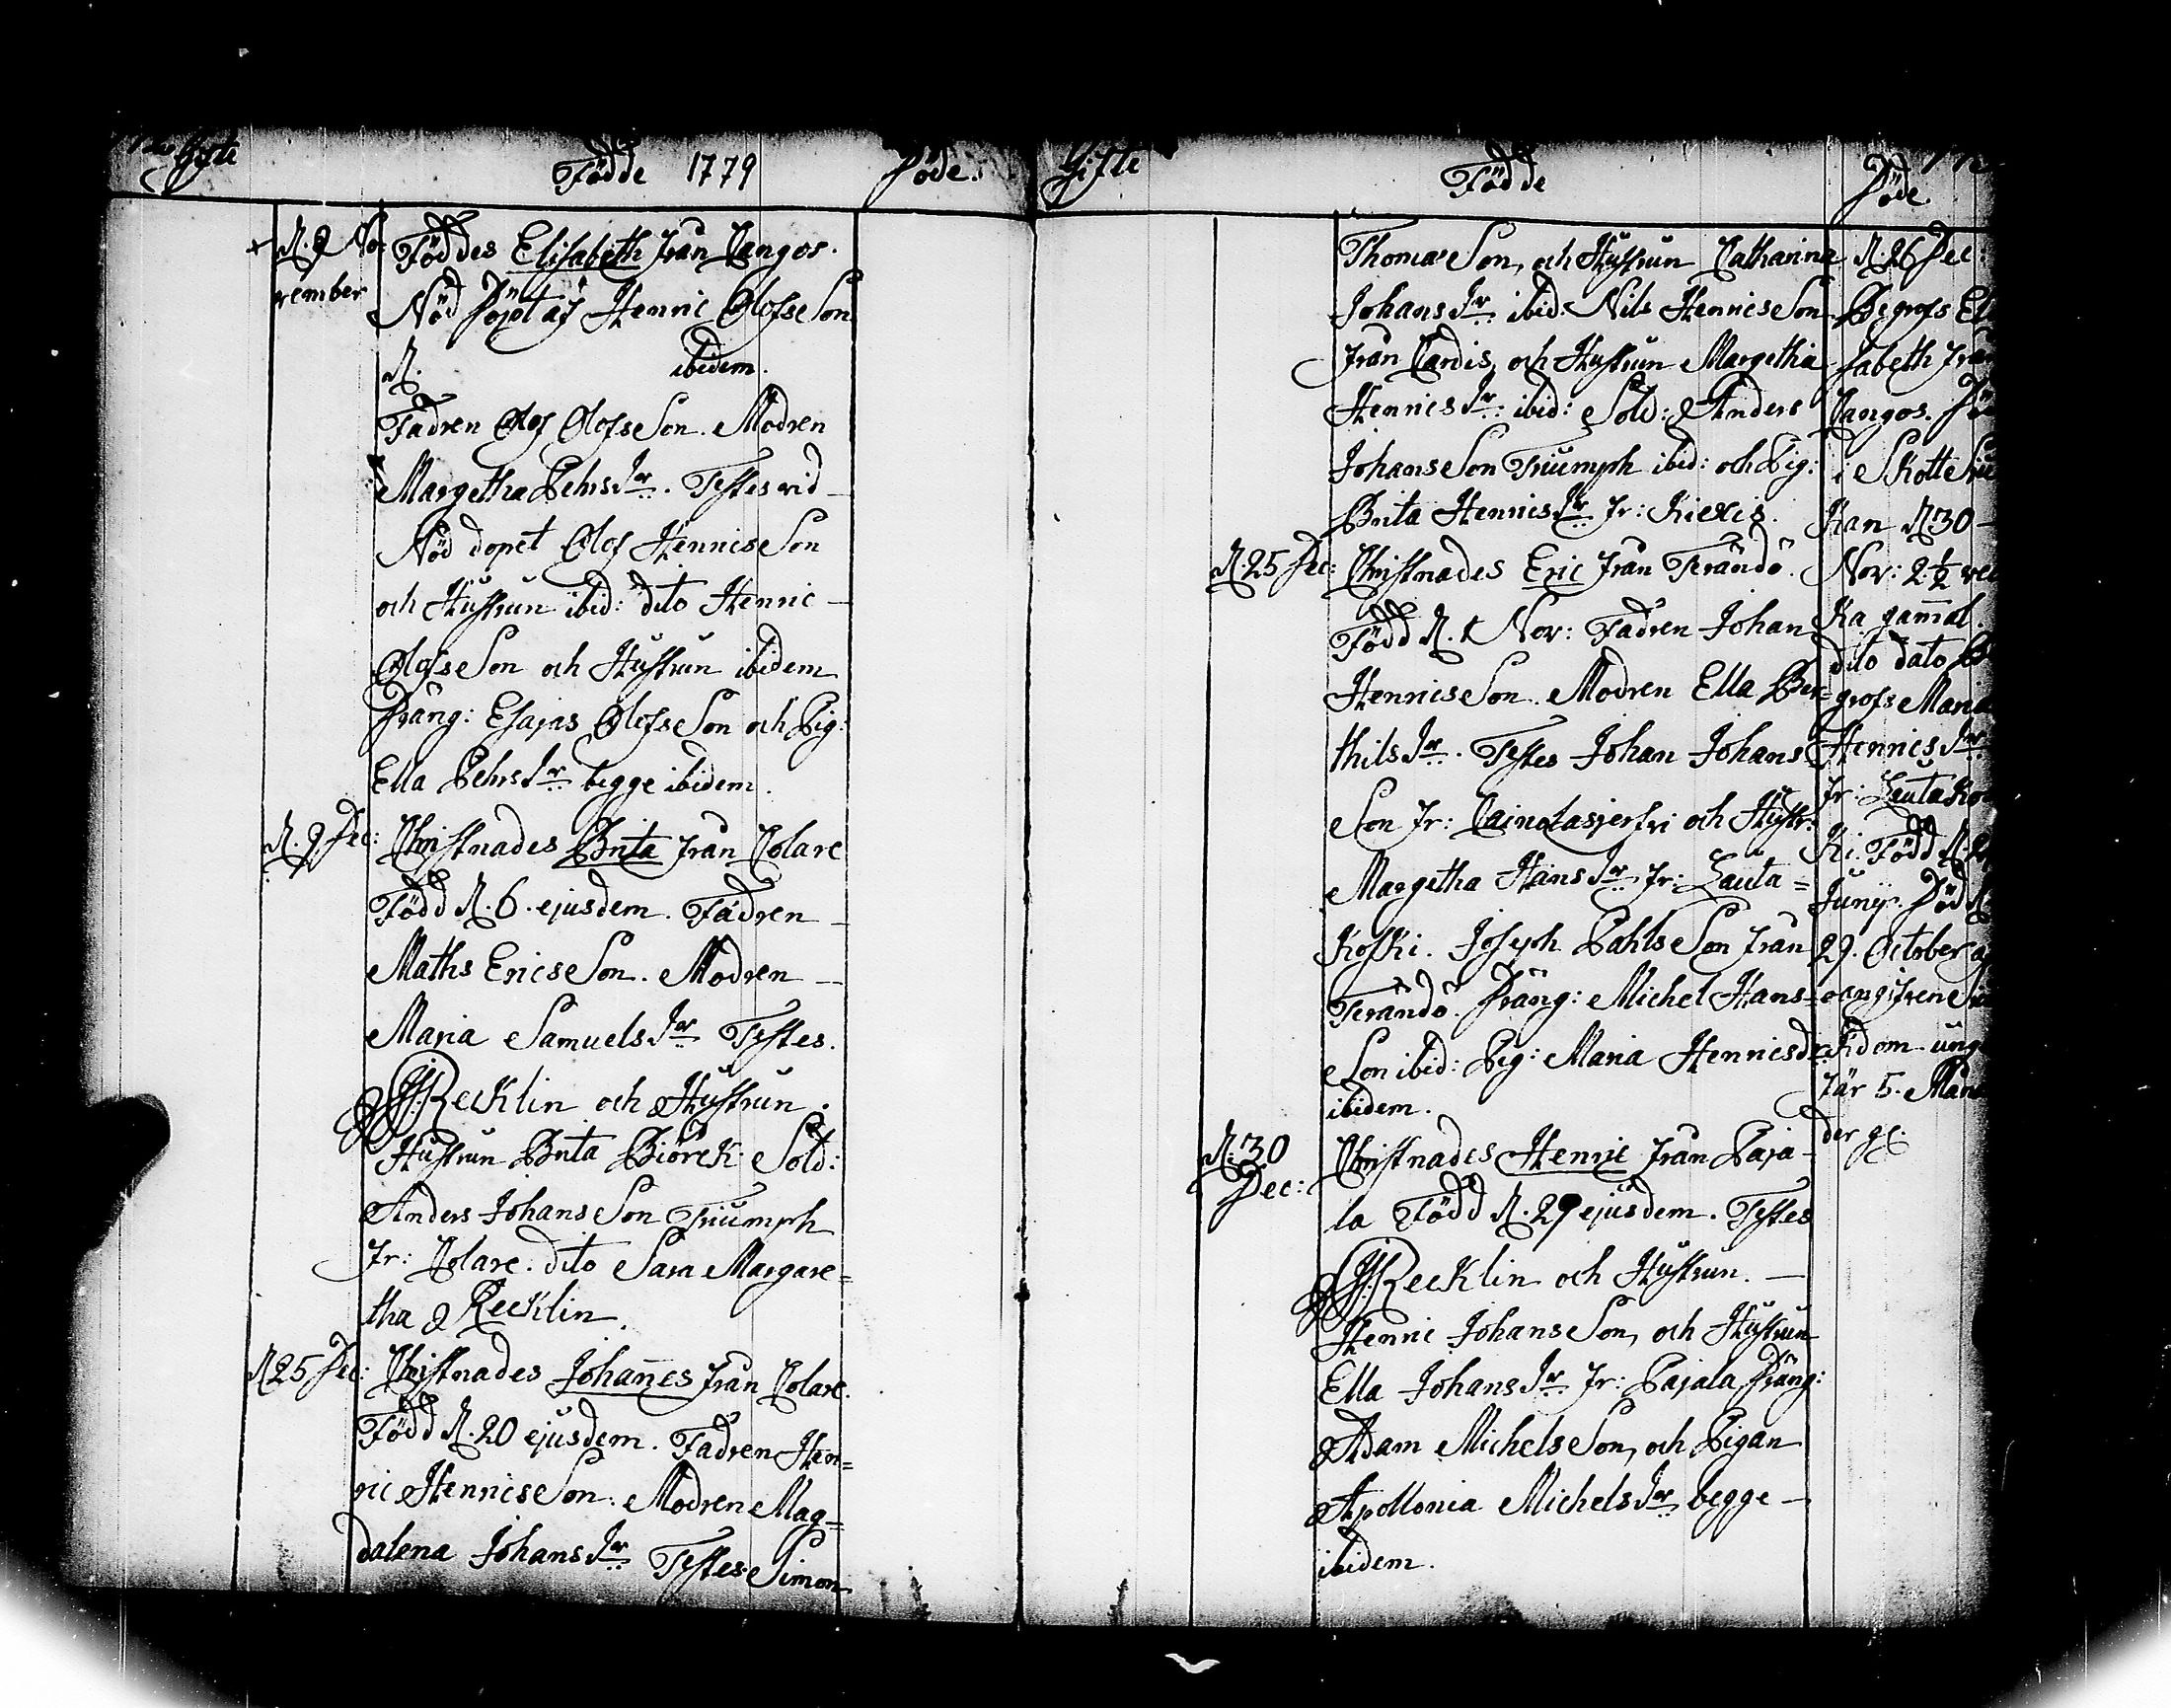 Gifte
Födde 1779
Döde.
D. 9 No-
vember
Föddes Elisabeth från Cangos.
Nöd Döpt af Henric OlofsSon
D. ibidem.
Fadren Olof OlofsSon. Modren
Margetha PehrsDr. Testes vid
Nöd dopet Olof HenricsSon
och Hustrun ibid: dito Henric
OlofsSon och Hustrun ibidem
Dräng: Esajas OlofsSon och Pig:
Ella PehrsDr begge ibidem.
D. 9 Dec:
Christnades Brita från Colare
Född D. 6. ejusdem. Fadren
Maths EricsSon. Modren
Maria SamuelsDr Testes.
Recklin och Hustrun.
Hustrun Brita Biörck Sold:
Anders JohansSon Triumph
fr: Colare. dito Sara Margare=
tha Recklin.
D 25 Dec:
Christnades Johan̄es från Colare.
Född D. 20 ejusdem. Fadren Hen=
ric HenricsSon. Modren Mag=
dalena JohansDr Testes Simon
Gifte
Födde
ThomæSon, och Hustrun Catharina
JohansDr ibid: Nils HenricsSon
från Cardis, och Hustrun Margetha
HenricsDr ibid: Sold: Anders
JohansSon Triumph ibid: och Pig:
Brita HenricsDr fr: Kiexis.
D. 25 Dec:
Christnades Eric från Terändö.
Född D. 1 Nov: Fadren Johan
HenricsSon. Modren Ella Ber=
thilsDr. Testes Johan Johans
Son fr: Cainolasjerfvi och Hustr:
Margetha HansDr fr: Lauta=
Koski. Joseph PahlsSon från
Terändö. Dräng: Michel Hans=
Son ibid: Pig: Maria Henricsdr
ibidem.
D. 30
Dec:
Christnades Henric från Paja-
la Född D. 29 ejusdem. Testes
Recklin och Hustrun.
Henric JohansSon, och Hustrun
Ella JohansDr fr: Pajala Dräng:
Adam MichelsSon, och Pigan
Apollonia MichelsDr begge
ibidem.
Döde.
D. 26 Dec:
Begrofs Eli
sabeth från
Cangos. Dö
i Skotte
Kan D 30
Nov: 2½ vec
Ka gam̄al.
dito dato Be
grofs Maria
HenricsDr
fr: Lautako
Ki. Född D.
Junij. Död D
29. October af
oangifven Siu
Kdom ung
1 år 5. Måna
der gl.